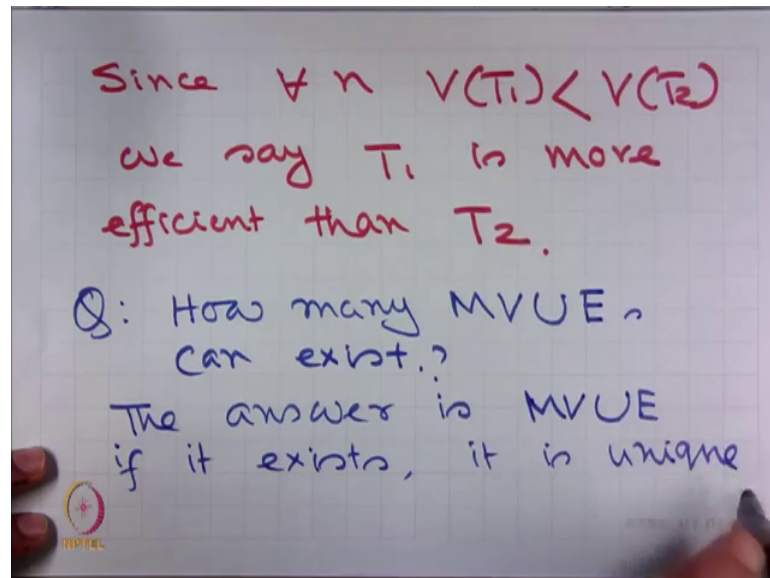 Since ∀ n V(T₁) < V(T₂)
we say T₁ is more
efficient than T₂.
Q: How many MVUEs
can exist.?
The answer is MVUE
if it exists, it is unique
NPTEL